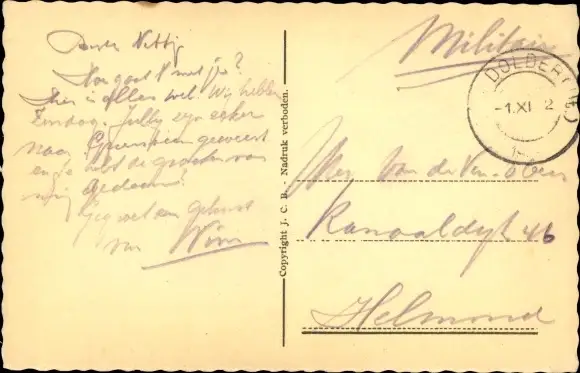 Beste Netty
Hoe gaat 't met je?
Hier is alles wel. Wij hebben
Zondag. Jullie zijn zeker
naar geweest
en je hebt de groeten van
mij gedaan?
Gegroet en gekust
van Wim
Copyright J. C. B. - Nadruk verboden.
Militair
DOLDER
-1.XI 2
Mej. van de Ven
Kanaaldijk 46
Helmond